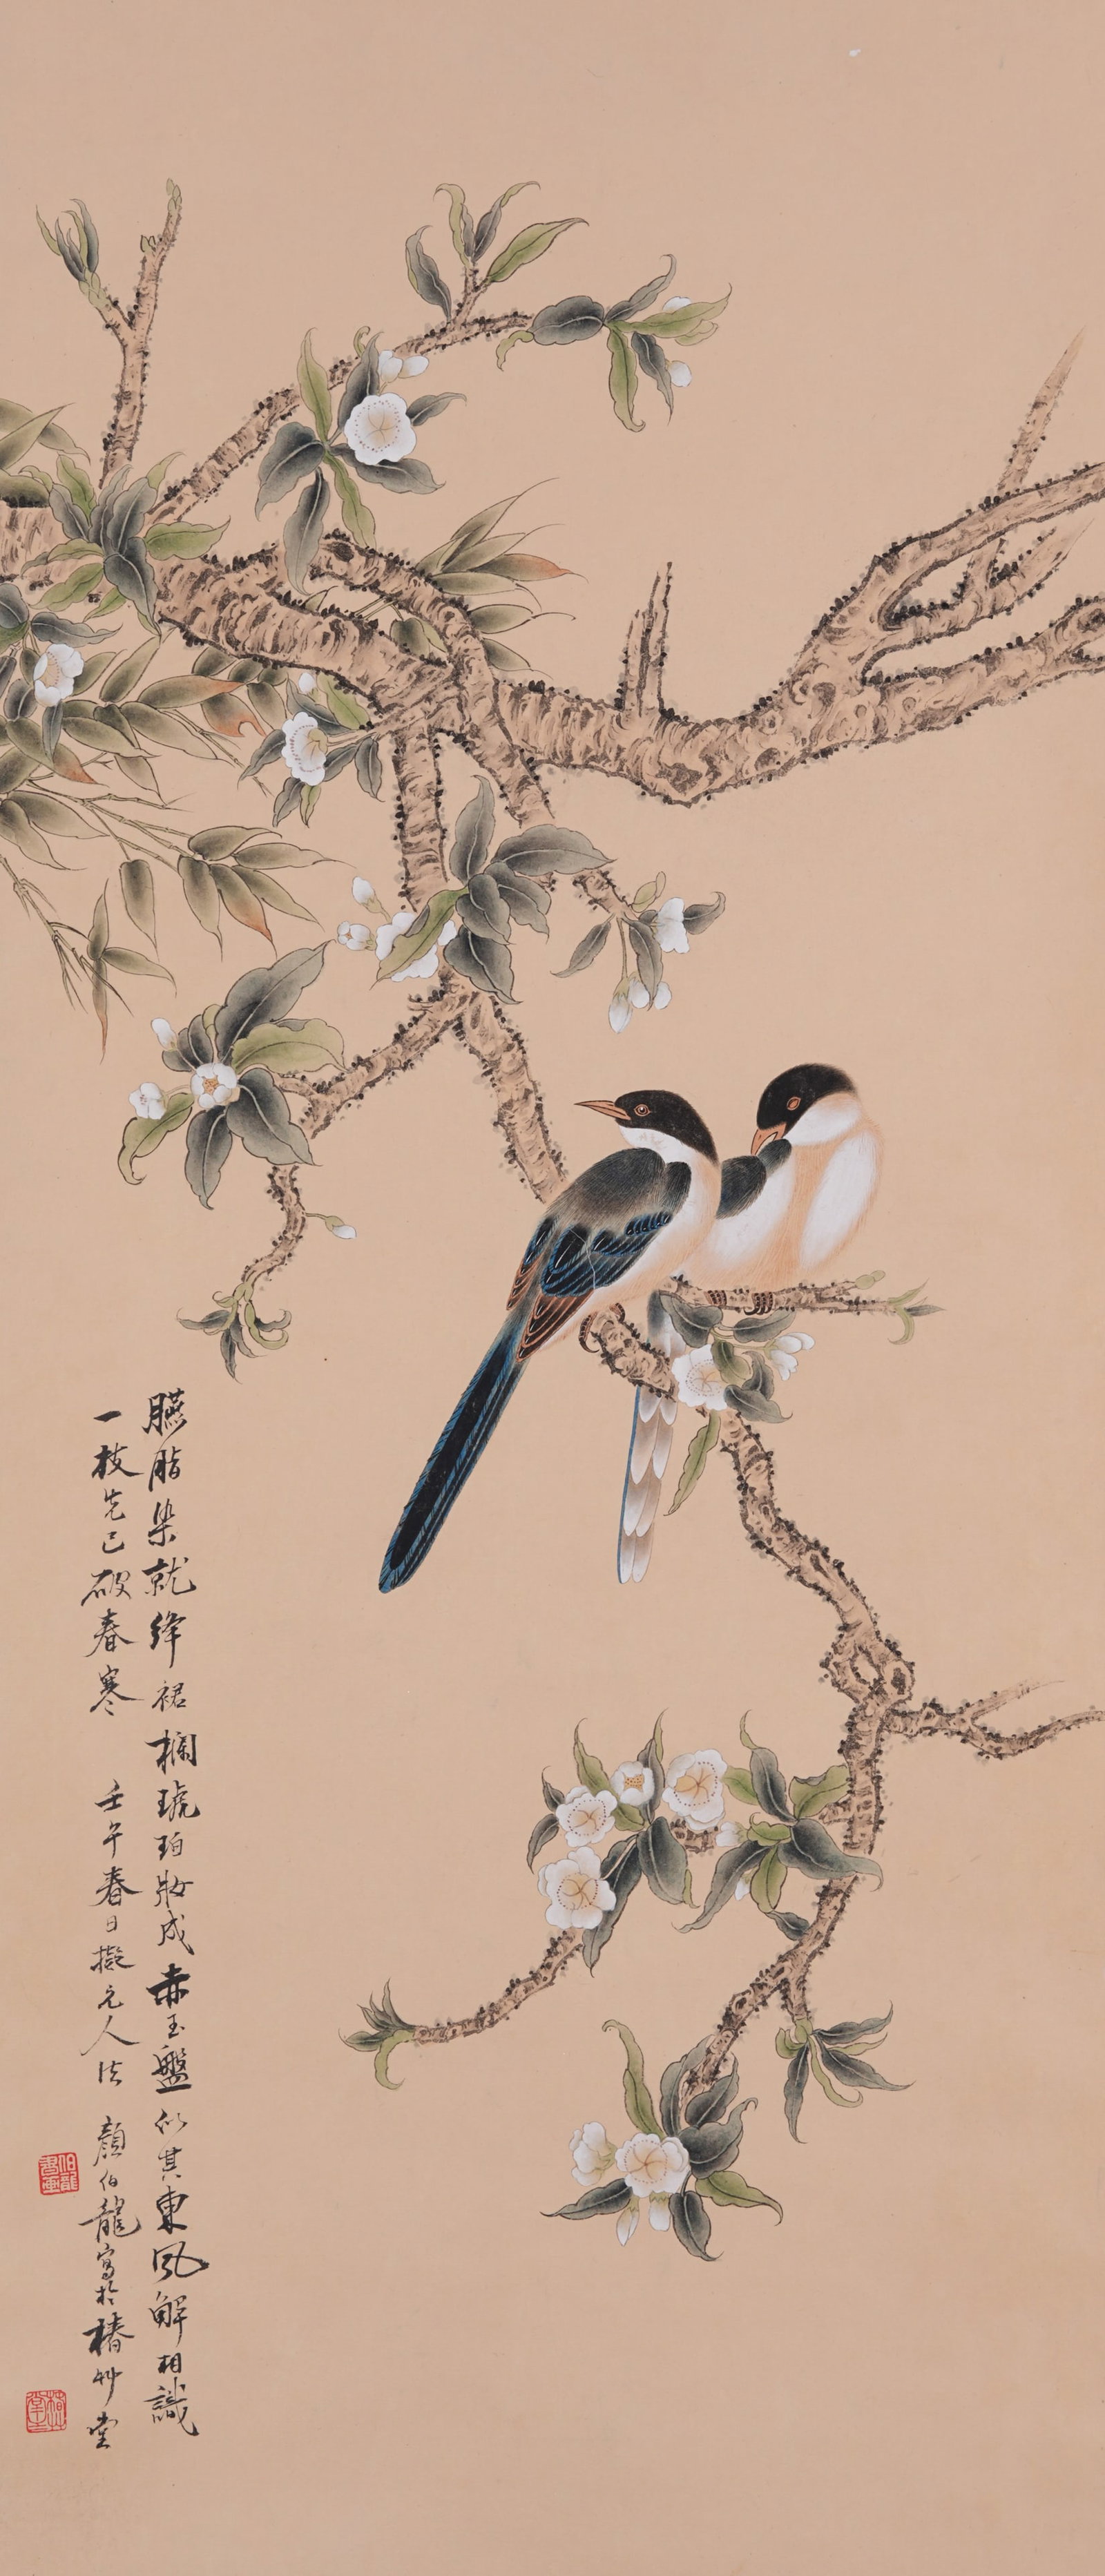 臙脂染就絳裙襴琥珀妝成赤玉盤似其東風解相識
一枝先已破春寒 壬午春日擬元人法 顏伯龍寫於椿艸堂
伯龍書畫